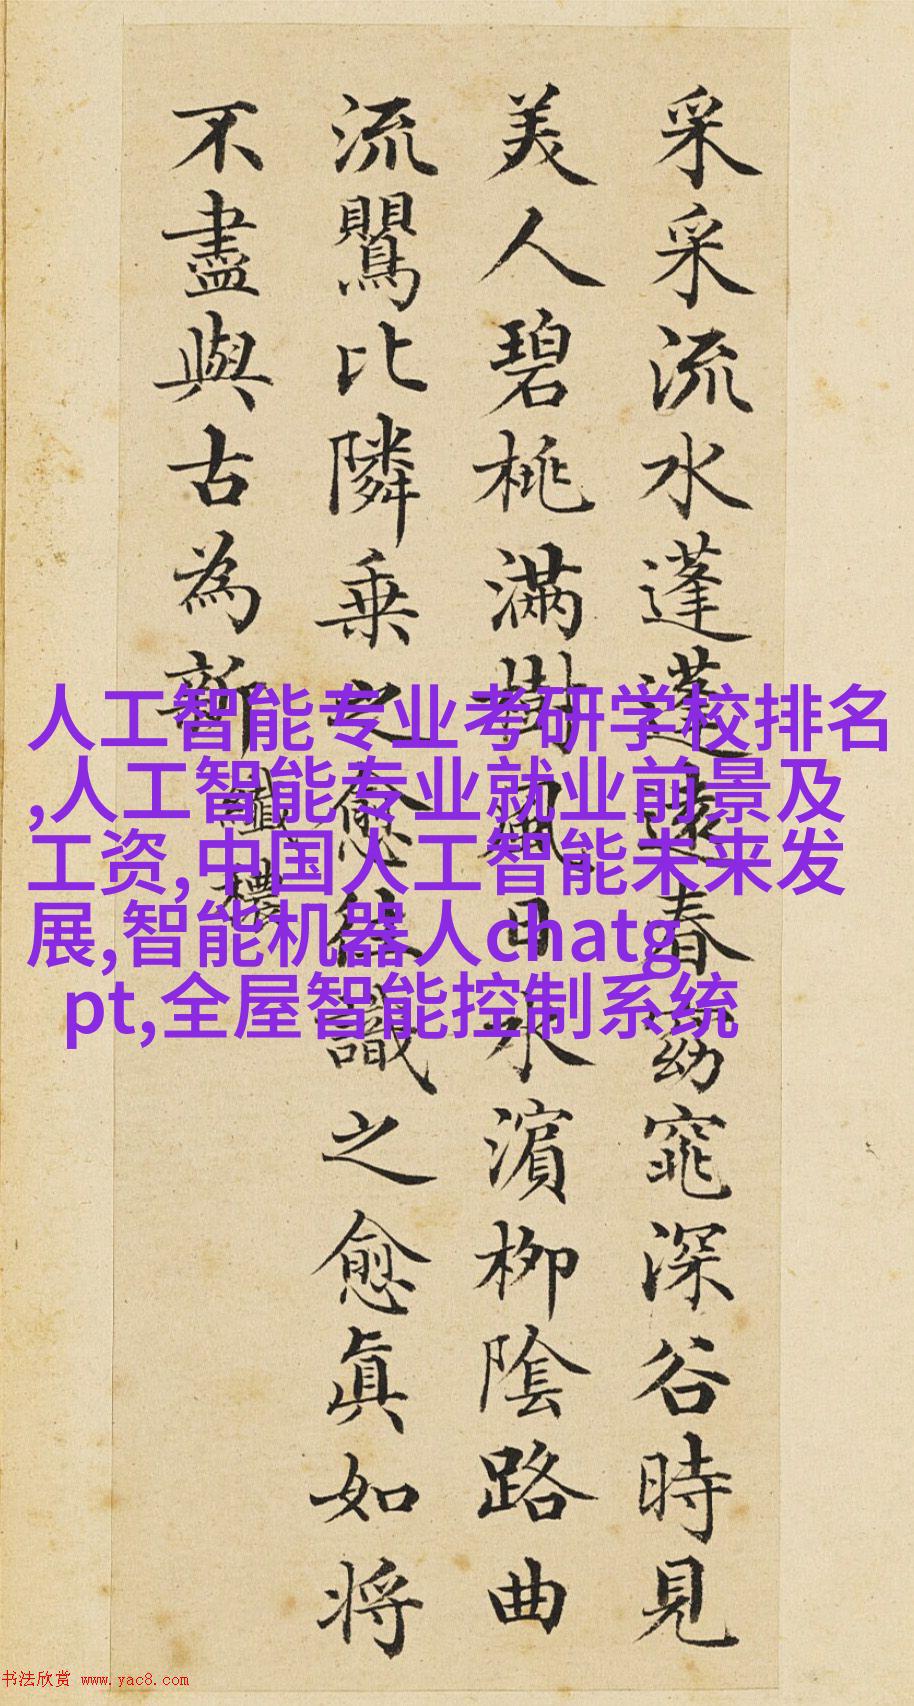 采采流水蓬蓬遠春窈窕深谷時見
美人碧桃滿樹風日水濱柳陰路曲
流鸎比隣乗之愈往識之愈眞如将
不盡與古為新
纖穠
人工智能专业考研学校排名
,人工智能专业就业前景及
工资,中国人工智能未来发
展,智能机器人chatg
pt,全屋智能控制系统
书法欣赏 www.yac8.com